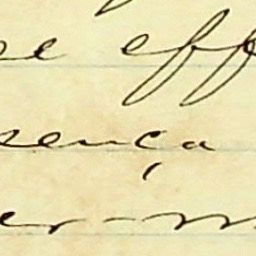 se eff
sença
er-m